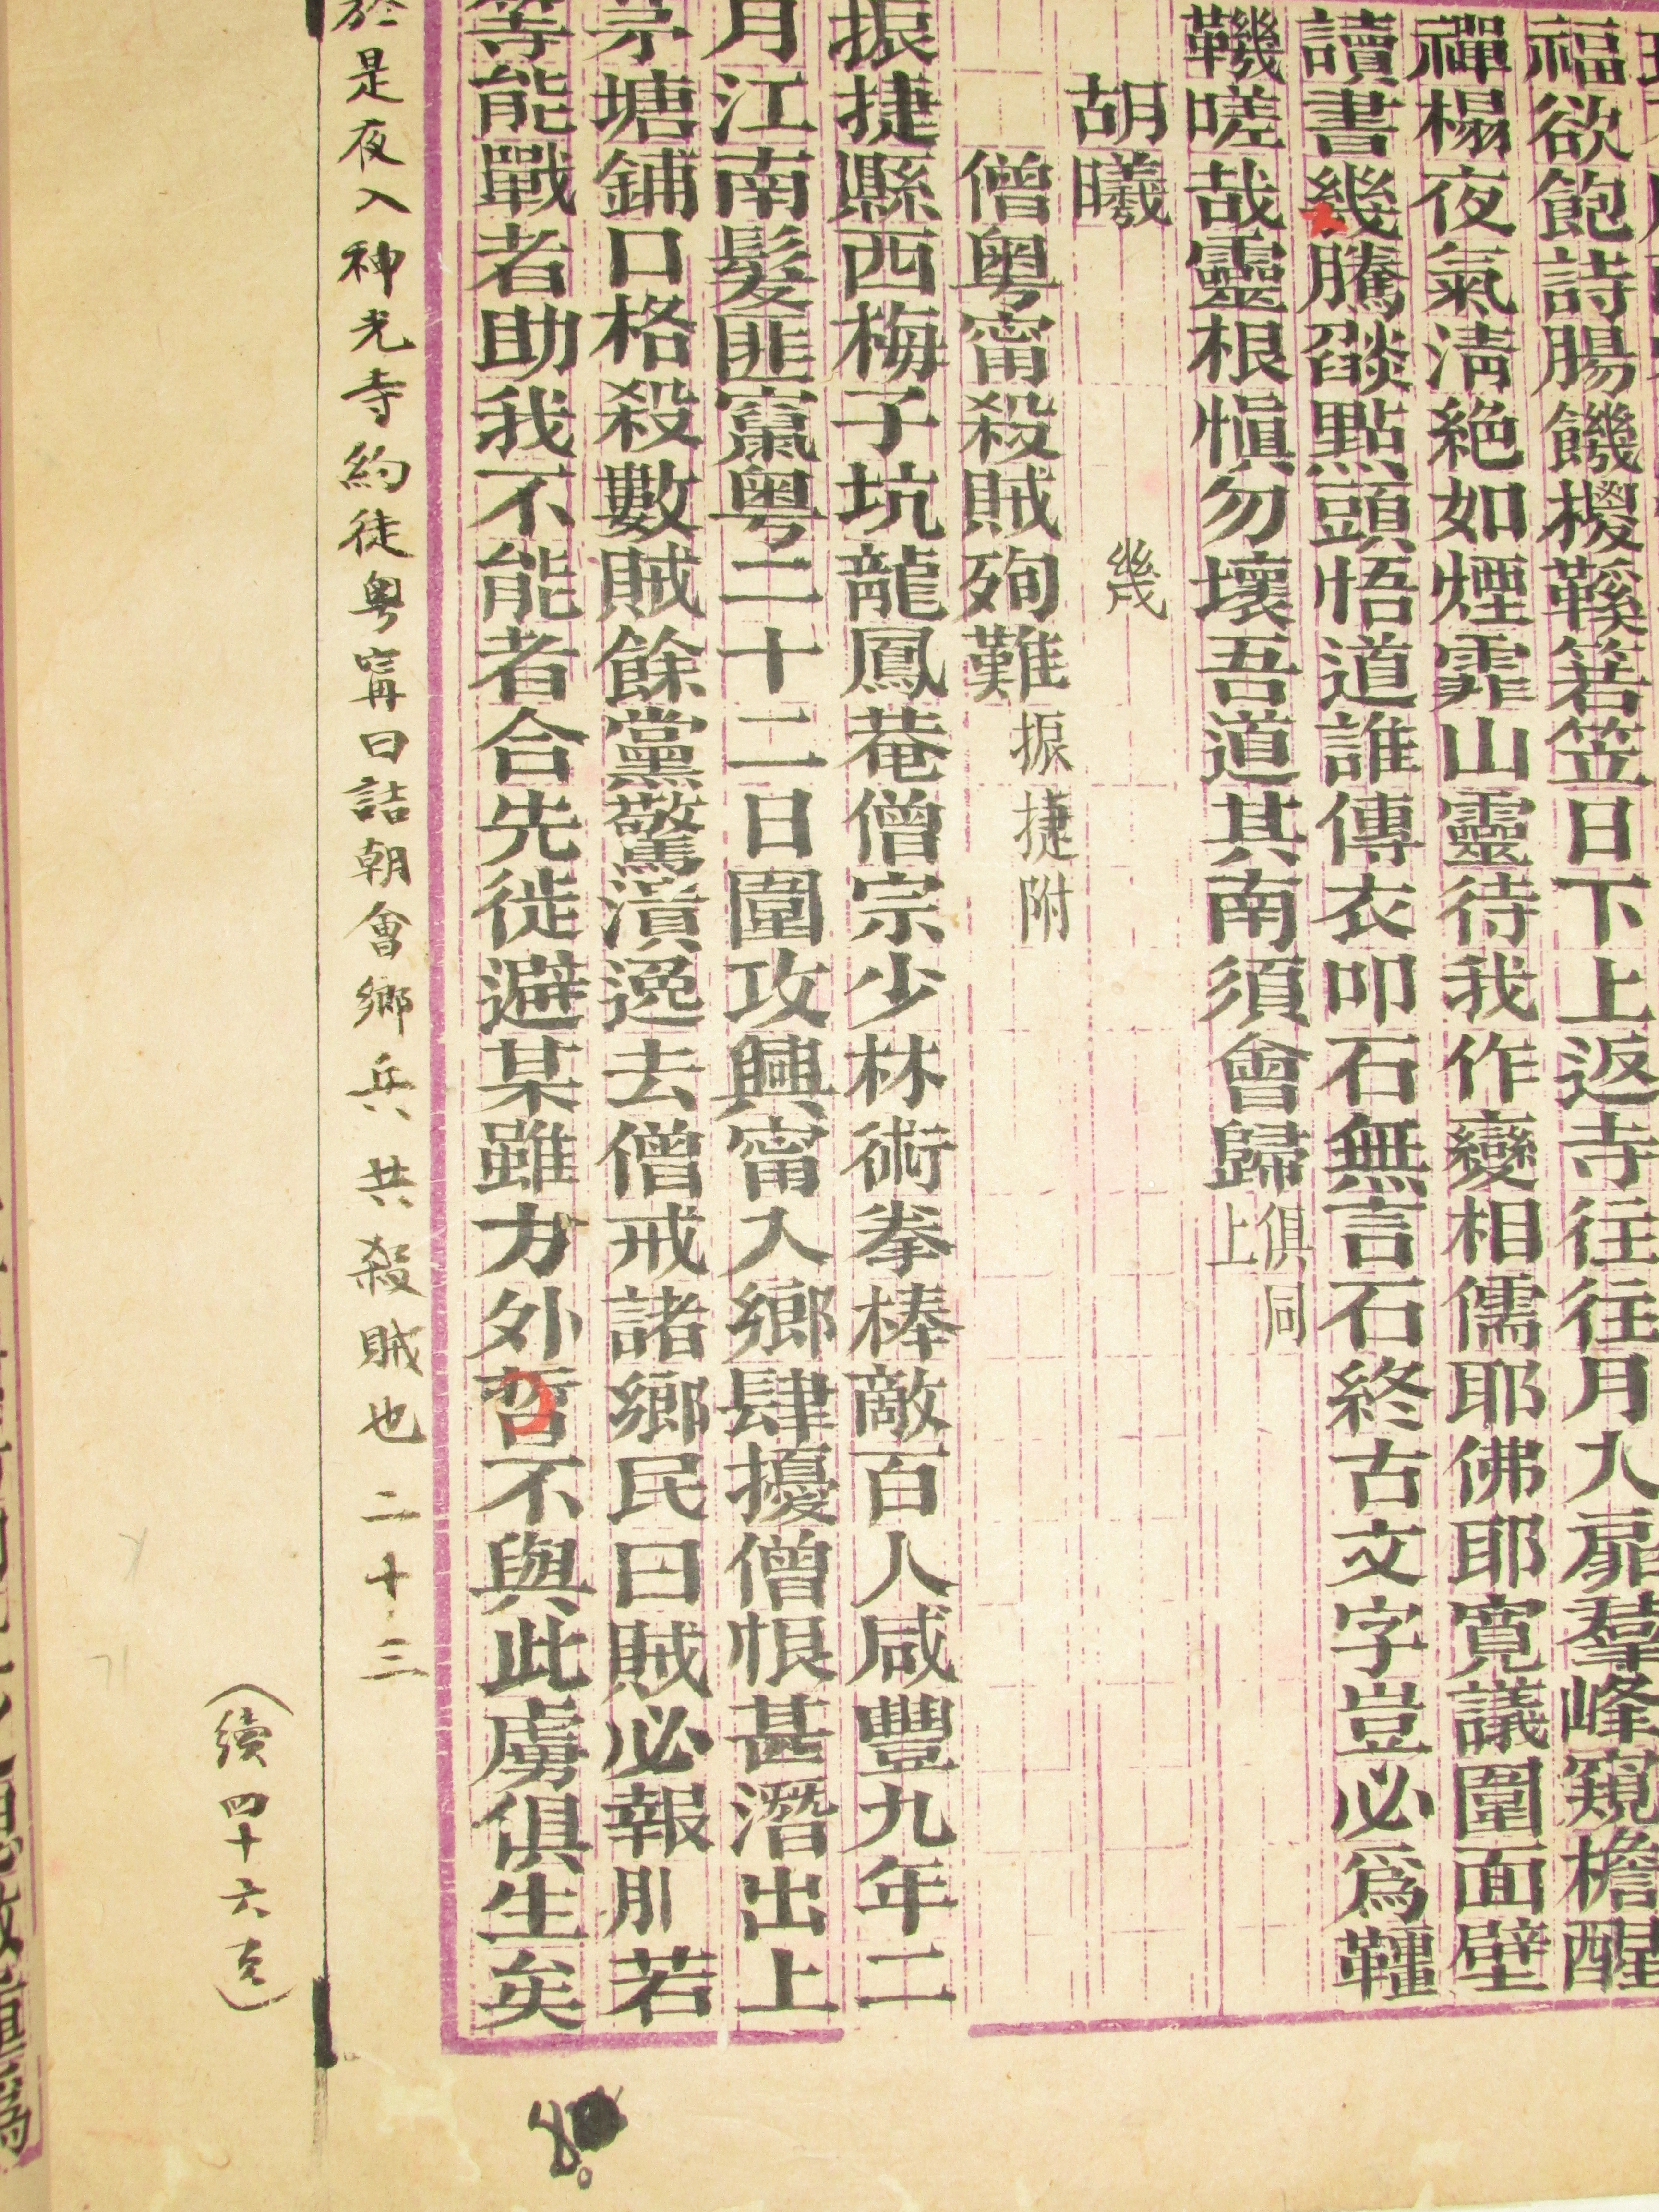 福欲飽詩腸饑機鞵箬笠日下上返寺往往月入扉羣峰窺檐醒
禪榻夜氣淸絶如煙霏山靈待我作變相儒耶佛耶寛議圍面壁
讀書幾騰燄點頭悟道誰傳衣叩石無言石終古文字豈必爲鞾
鞿嗟哉靈根愼勿壞吾道其南須會歸俱同上
幾
胡曦
僧粤甯殺賊殉難振捷附
振捷縣西梅子坑龍鳳菴僧宗少林術拳棒敵百人咸豐九年二
月江南髮匪竄粤二十二日圍攻興甯入鄉肆擾僧恨甚潛出上
茅塘鋪口格殺數賊餘黨驚潰逸去僧戒諸鄉民曰賊必報若
等能戰者助我不能者合先徙避某雖方外哲不與此虜俱生矣
於是夜入神光寺約徒粤甯曰詰朝會鄉兵共殺賊也二十三
(續四十六頁)
80